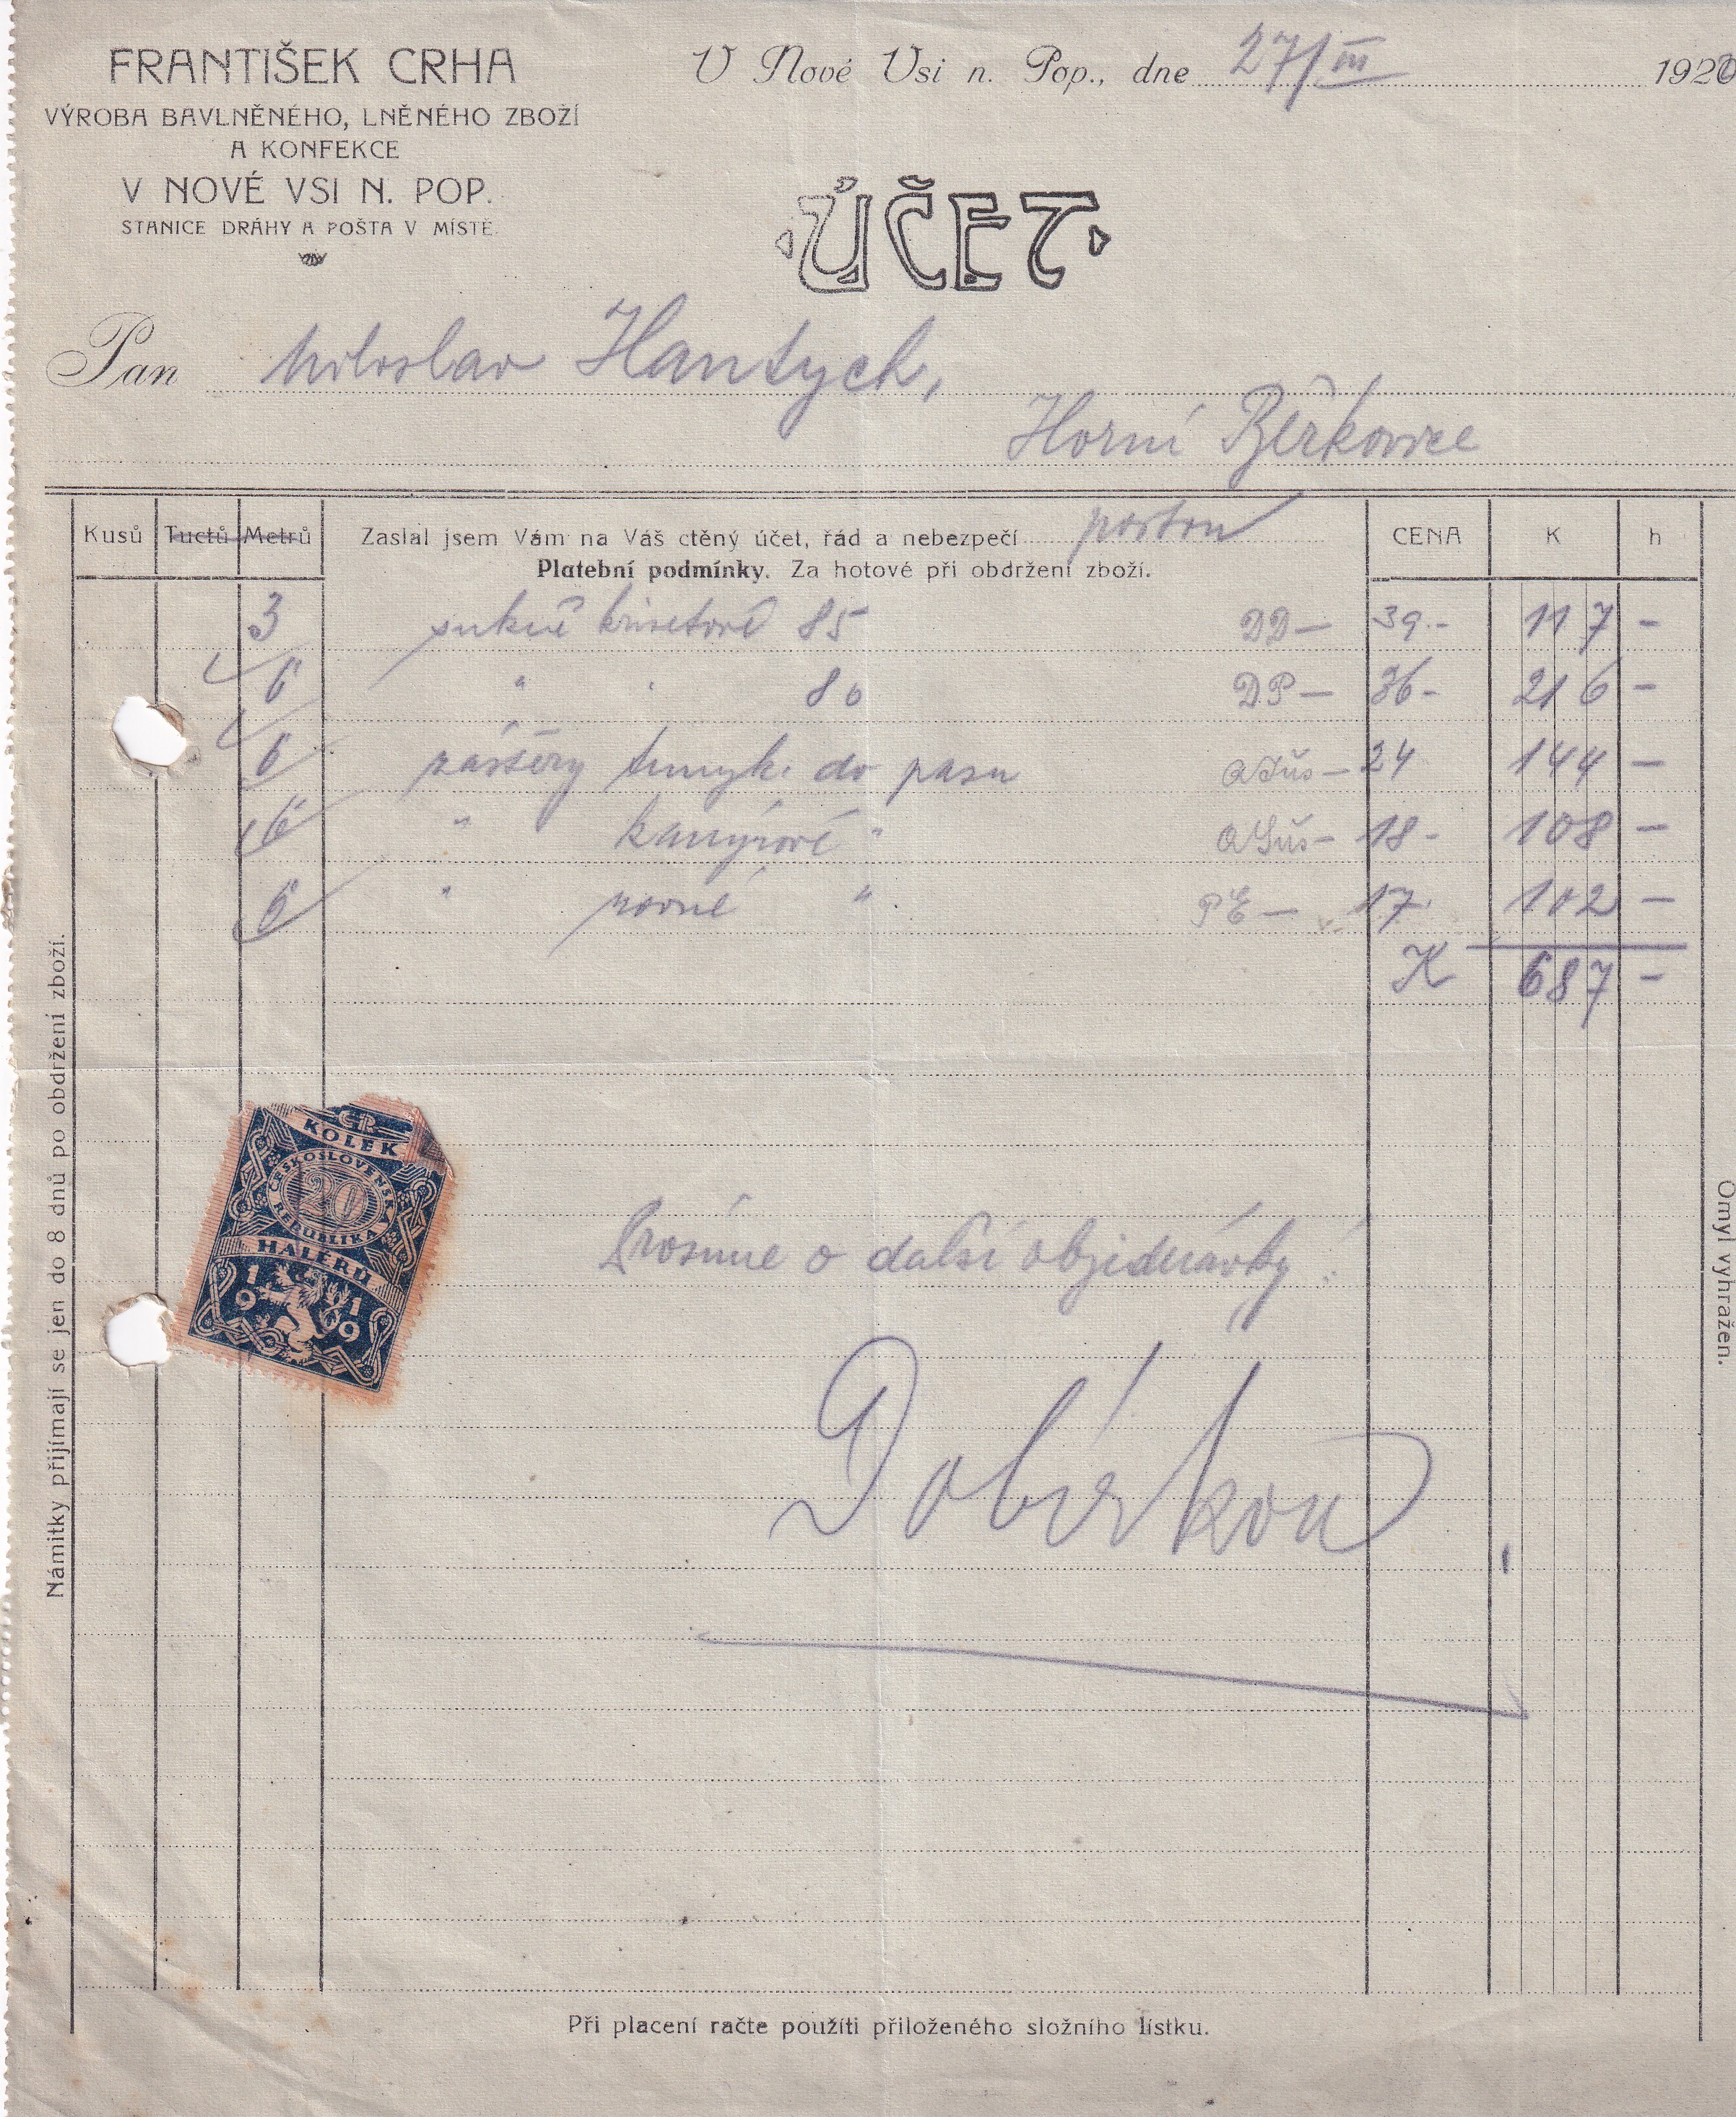 FRANTIŠEK CRHA
VÝROBA BAVLNĚNÉHO, LNĚNÉHO ZBOŽÍ
A KONFEKCE
V NOVÉ VSI N. POP.
STANICE DRÁHY A POŠTA V MÍSTĚ.
V Nové Vsi n. Pop., dne 27/III 1920
ÚČET
Pan Miloslav Hantych,
Horní Beřkovice
Kusů Tuctů Metrů Zaslal jsem Vám na Váš ctěný účet, řád a nebezpečí poštou CENA K h
Platební podmínky. Za hotové při obdržení zboží.
3 sukně 85 DD— 39.- 117 -
6 " " 80 DP— 36- 216 -
6 zástěry do pasu 24 144 -
6 " kanýrové " 18- 108 -
6 " rovné " PE— 17 102 -
K 687 -
ČR
KOLEK
ČESKOSLOVENSKÁ
20
REPUBLIKA
HALÉŘŮ
1919
Prosíme o další objednávky!
Dobírkou
Námitky přijímají se jen do 8 dnů po obdržení zboží.
Omyl vyhražen.
Při placení račte použíti přiloženého složního lístku.